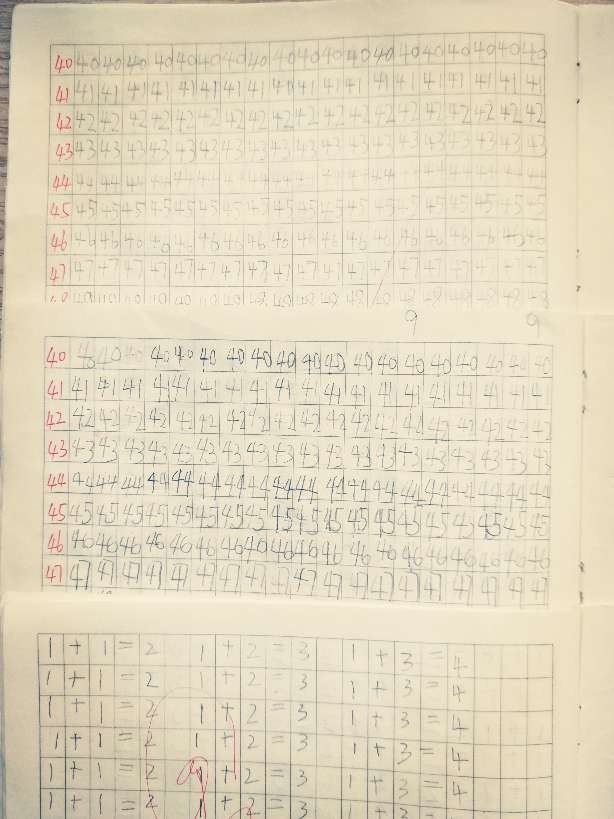 40 40 40 40 40 40 40 40 40 40 40 40 40 40 40 40 40 40 40 40
41 41 41 41 41 41 41 41 41 41 41 41 41 41 41 41 41 41 41 41
42 42 42 42 42 42 42 42 42 42 42 42 42 42 42 42 42 42 42 42
43 43 43 43 43 43 43 43 43 43 43 43 43 43 43 43 43 43 43 43
44 44 44 44 44 44 44 44 44 44 44 44 44 44 44 44 44 44 44 44
45 45 45 45 45 45 45 45 45 45 45 45 45 45 45 45 45 45 45 45
46 46 46 46 46 46 46 46 46 46 46 46 46 46 46 46 46 46 46 46
47 47 47 47 47 47 47 47 47 47 47 47 47 47 47 47 47 47 47 47
9 9
40 40 40 40 40 40 40 40 40 40 40 40 40 40 40 40 40 40 40 40
41 41 41 41 41 41 41 41 41 41 41 41 41 41 41 41 41 41 41 41
42 42 42 42 42 42 42 42 42 42 42 42 42 42 42 42 42 42 42 42
43 43 43 43 43 43 43 43 43 43 43 43 43 43 43 43 43 43 43 43
44 44 44 44 44 44 44 44 44 44 44 44 44 44 44 44 44 44 44 44
45 45 45 45 45 45 45 45 45 45 45 45 45 45 45 45 45 45 45 45
46 46 46 46 46 46 46 46 46 46 46 46 46 46 46 46 46 46 46 46
47 47 47 47 47 47 47 47 47 47 47 47 47 47 47 47 47 47 47 47
1 + 1 = 2 1 + 2 = 3 1 + 3 = 4
1 + 1 = 2 1 + 2 = 3 1 + 3 = 4
1 + 1 = 2 1 + 2 = 3 1 + 3 = 4
1 + 1 = 2 1 + 2 = 3 1 + 3 = 4
1 + 1 = 2 1 + 2 = 3 1 + 3 = 4
1 + 1 = 2 1 + 2 = 3